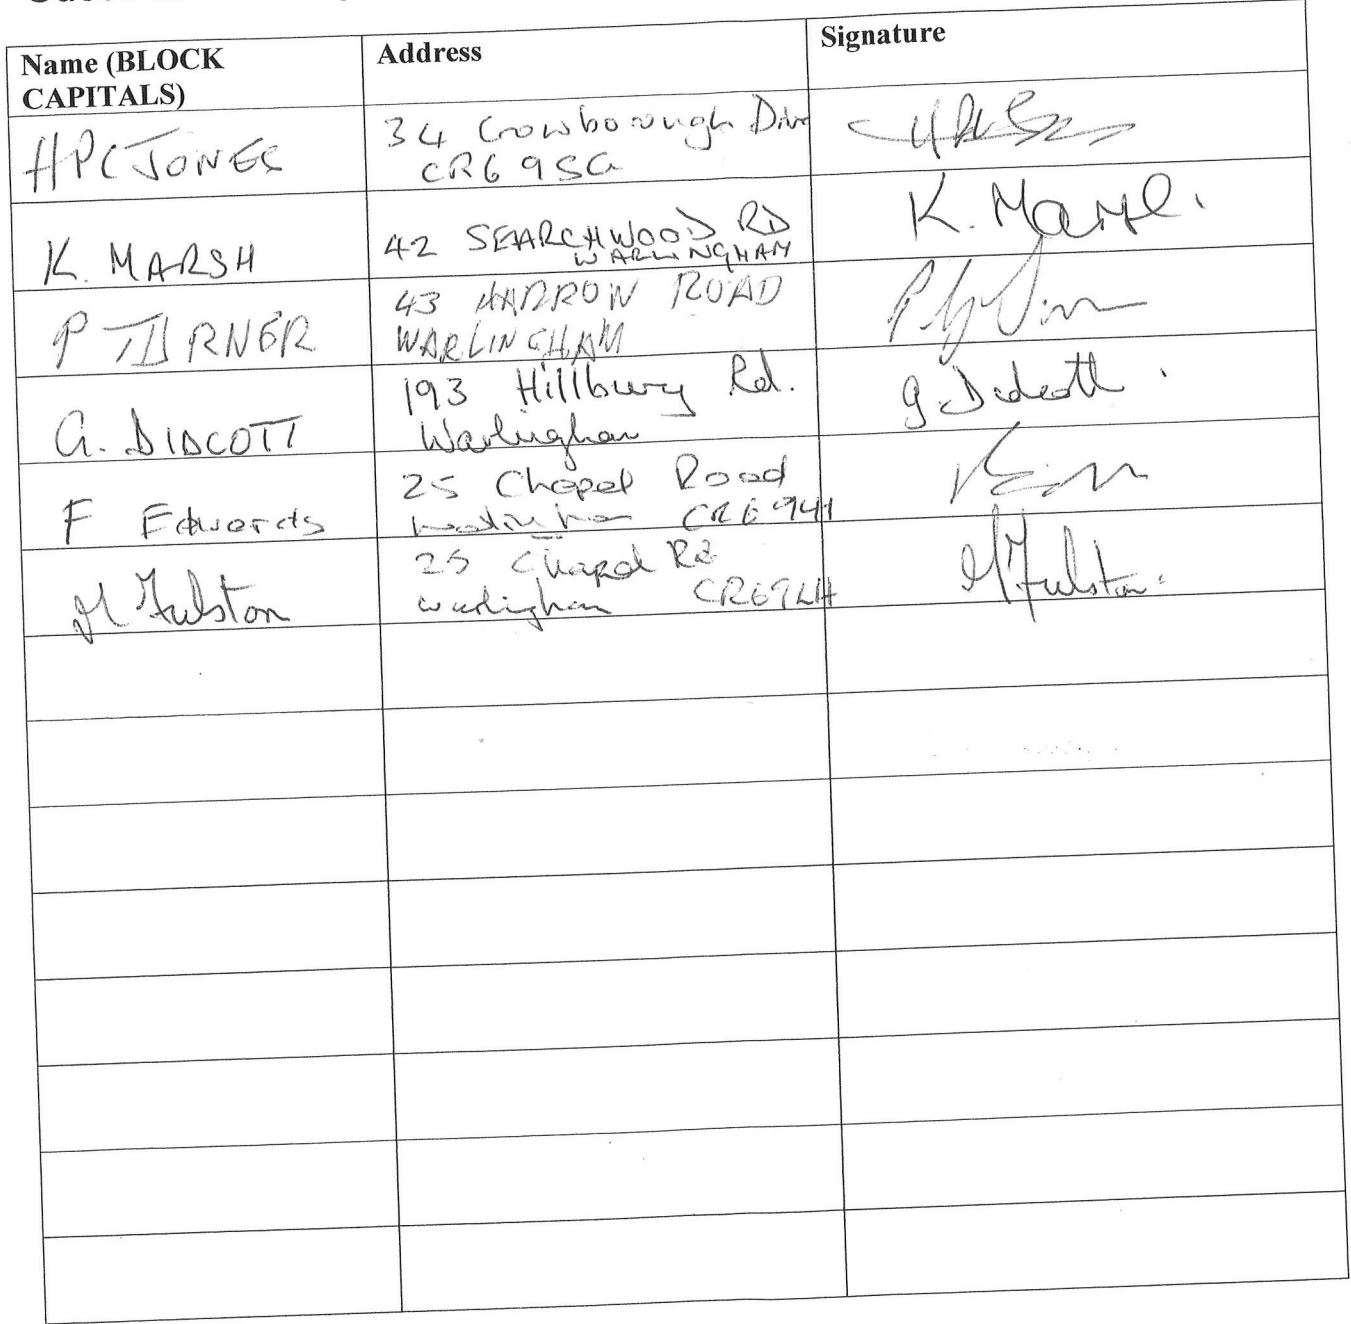 Name (BLOCK
CAPITALS)
Address
Signature
HPC JONES
34 Crowborough Drive
CR6 9SG
K. MARSH
42 SEARCHWOOD RD
WARLINGHAM
K. Marsh.
P TURNER
43 HARROW ROAD
WARLINGHAM
G. DIDCOTT
193 Hillbury Rd.
Warlingham
G. Didcott.
F Edwards
25 Chapel Road
Warlingham CR6 9LH
M Fulston
25 Chapel Rd
Warlingham CR6 9LH
M Fulston.